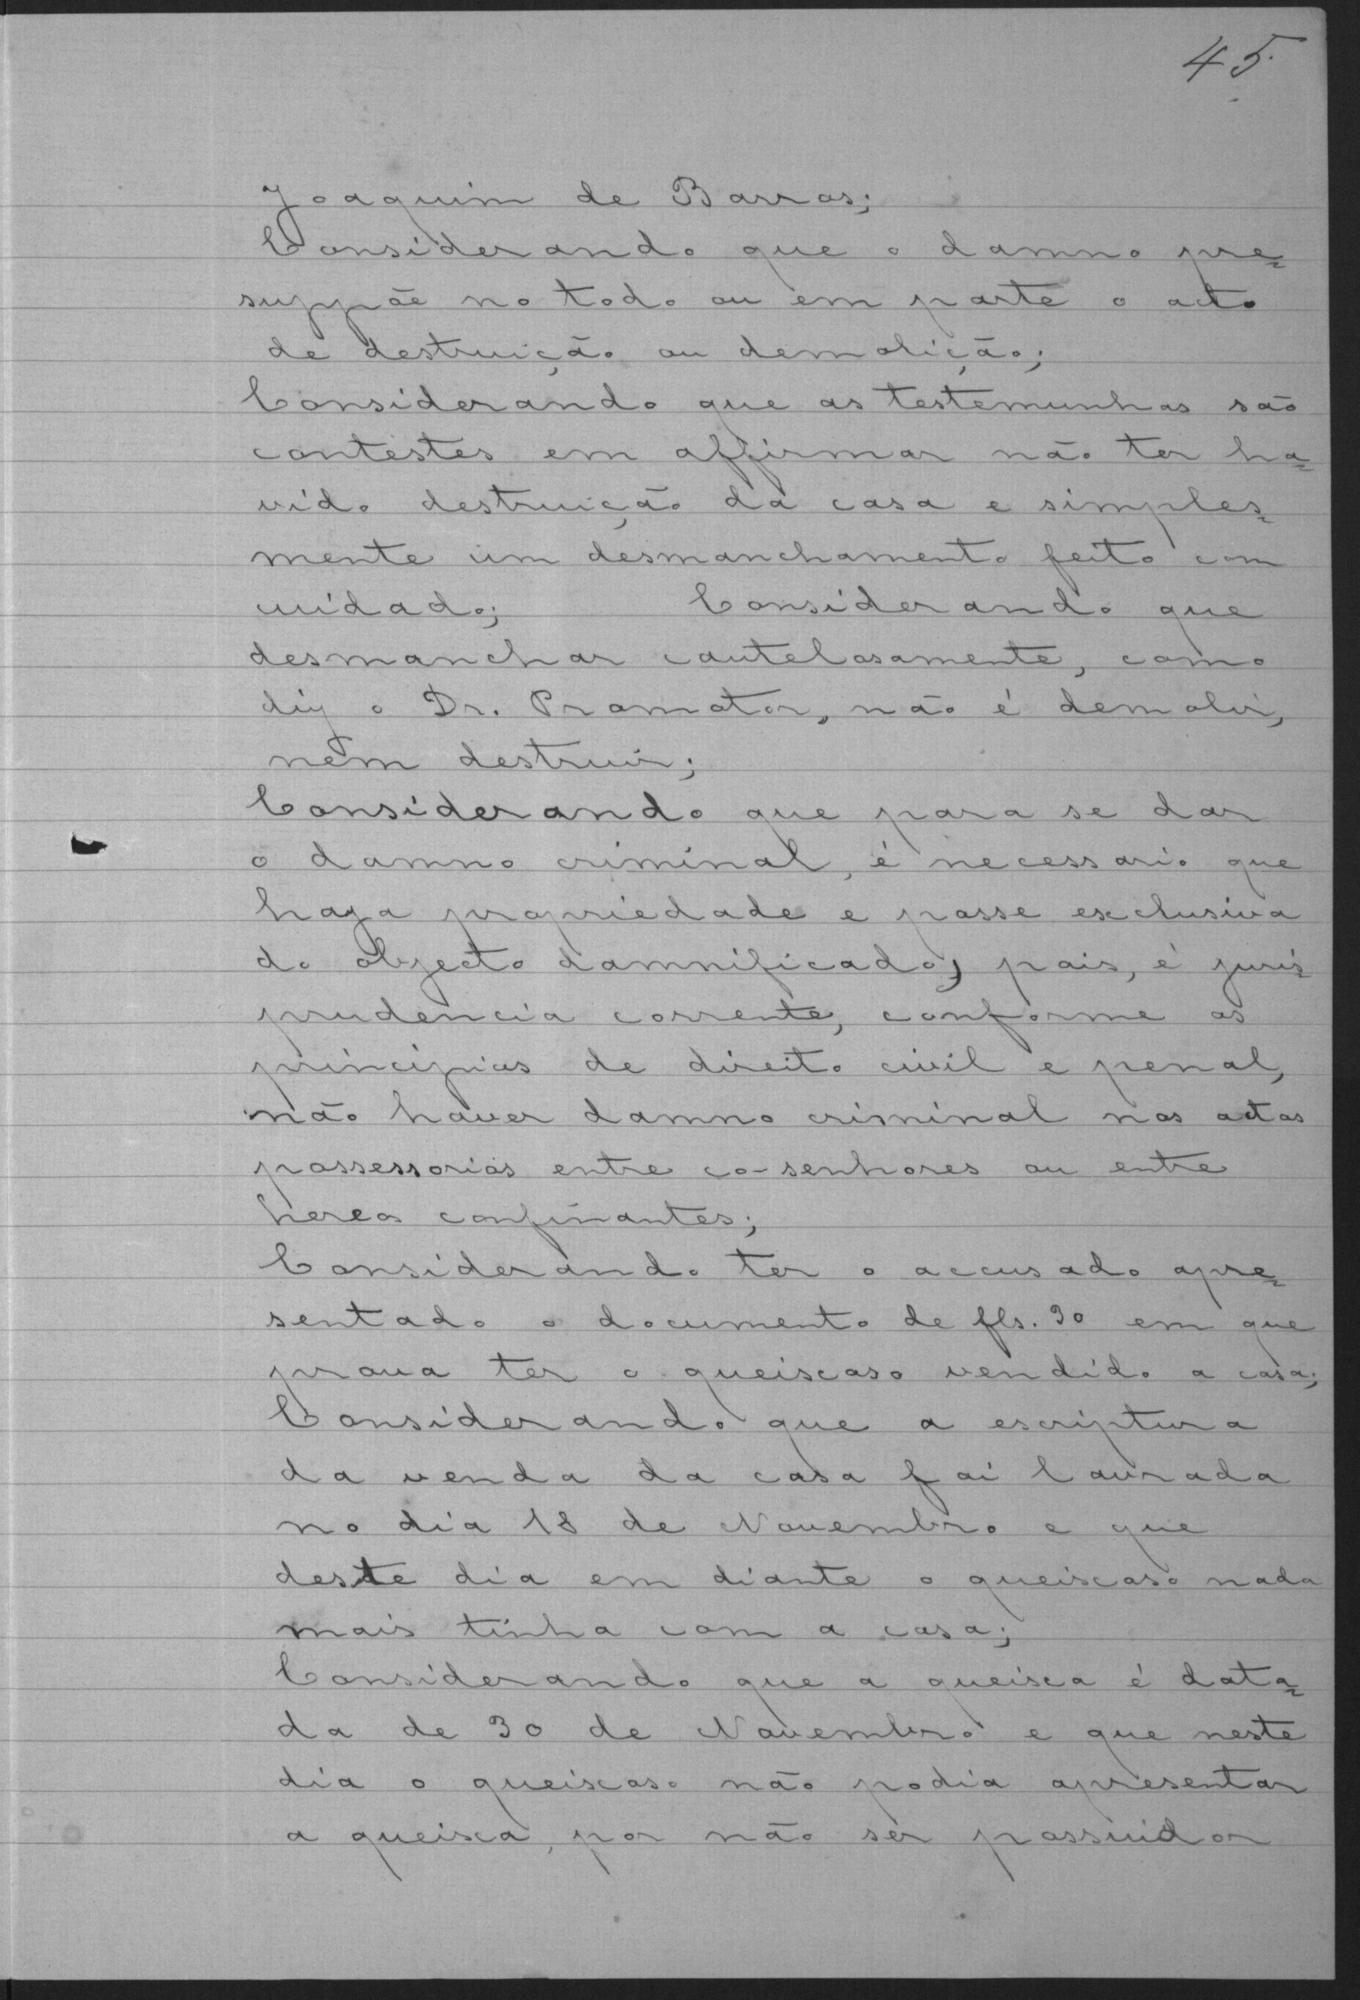 45
Joaquim de Barros;
Considerando que o damno pre=
suppõe no todo ou em parte o acto
de destruição ou demolição;
Considerando que as testemunhas são
contestes em affirmar não ter ha=
vido destruição da casa e simples=
mente um desmanchamento feito com
cuidado; Considerando que
desmanchar cautelosamente, como
diz o Dr. Promotor, não é demolir,
nem destruir;
Considerando que para se dar
o damno criminal, é necessario que
haja propriedade e posse exclusiva
do objecto damnificado, pois, é juris=
prudencia corrente, conforme os
principios de direito civil e penal,
não haver damno criminal nos actos
possessorios entre co-senhores ou entre
hereos confinantes;
Considerando ter o accusado apre=
sentado o documento de fls. 30 em que
prova ter o queixoso vendido a casa;
Considerando que a escriptura
da venda da casa foi lavrada
no dia 18 de Novembro e que
deste dia em diante o queixoso nada
mais tinha com a casa;
Considerando que a queixa é data=
da de 30 de Novembro e que neste
dia o queixoso não podia apresentar
a queixa, por não ser possuidor